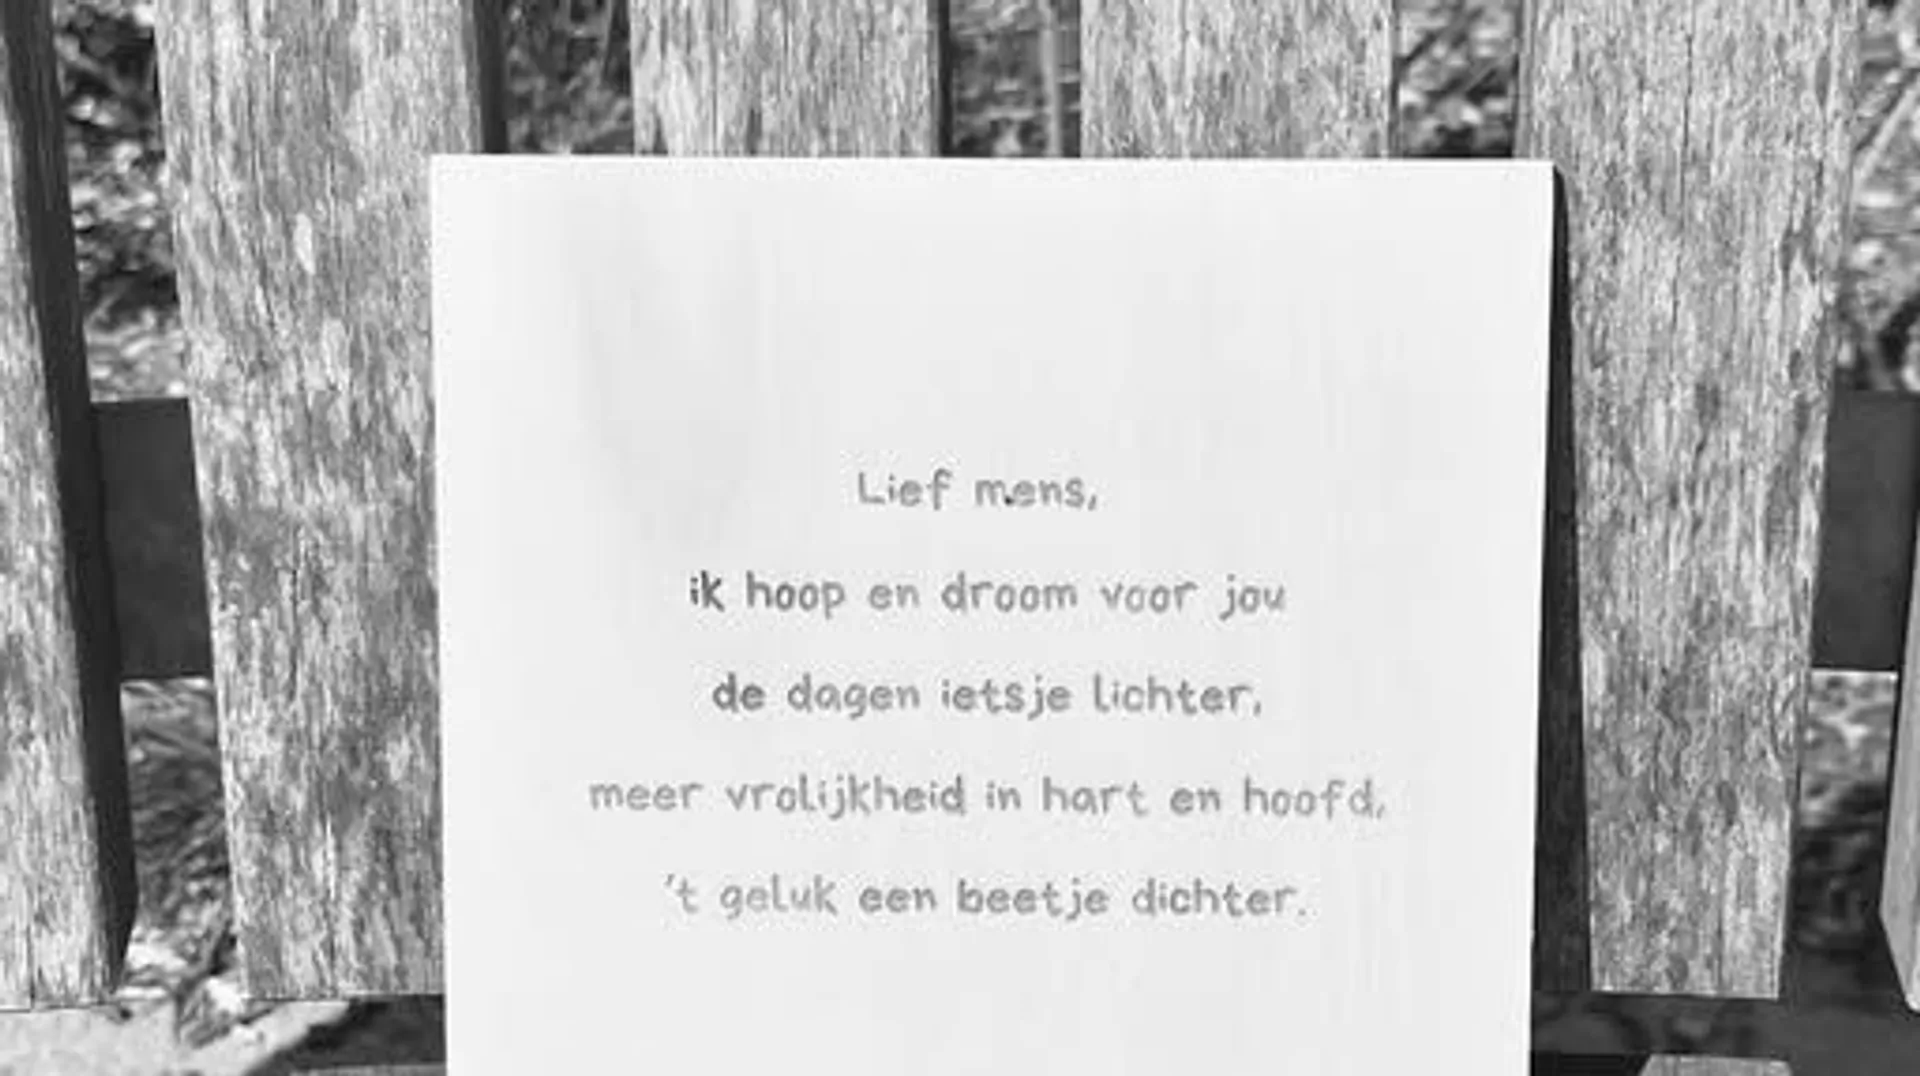 Lief mens,
ik hoop en droom voor jou
de dagen ietsje lichter,
meer vrolijkheid in hart en hoofd,
't geluk een beetje dichter.